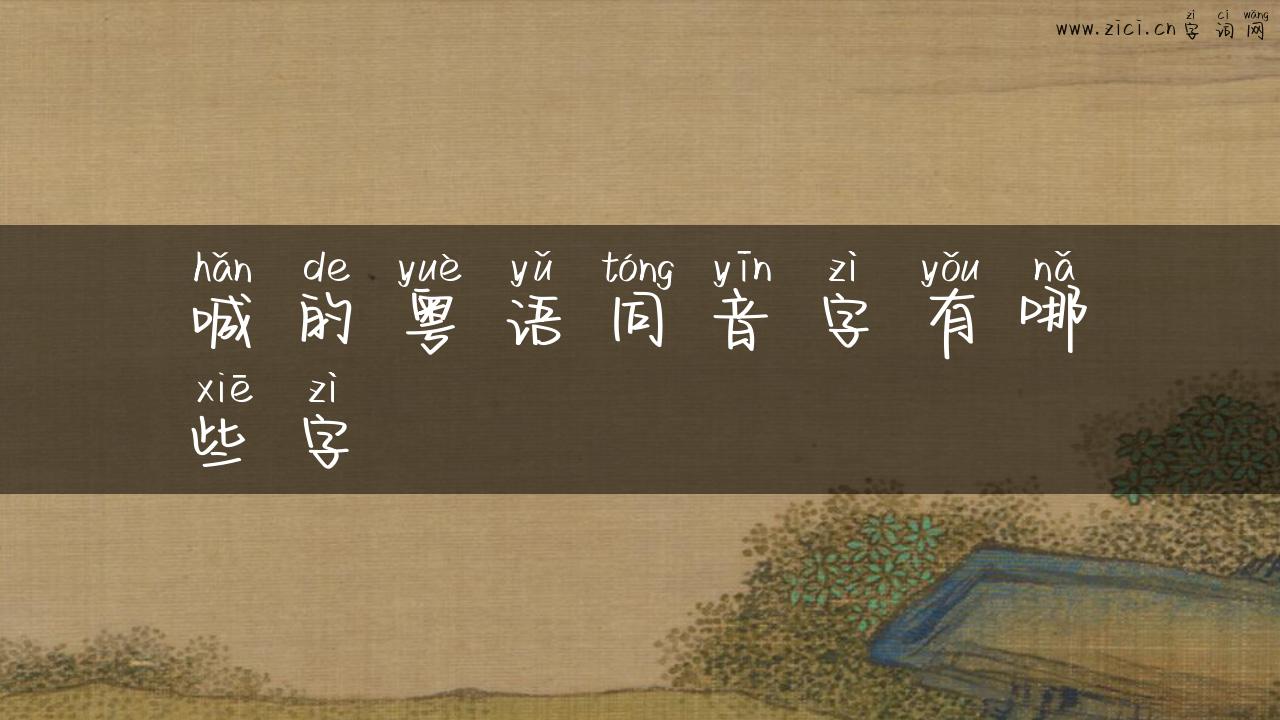 zì cí wǎng
www.zici.cn 字词网
hǎn de yuè yǔ tóng yīn zì yǒu nǎ
喊的粤语同音字有哪
xiē zì
些字